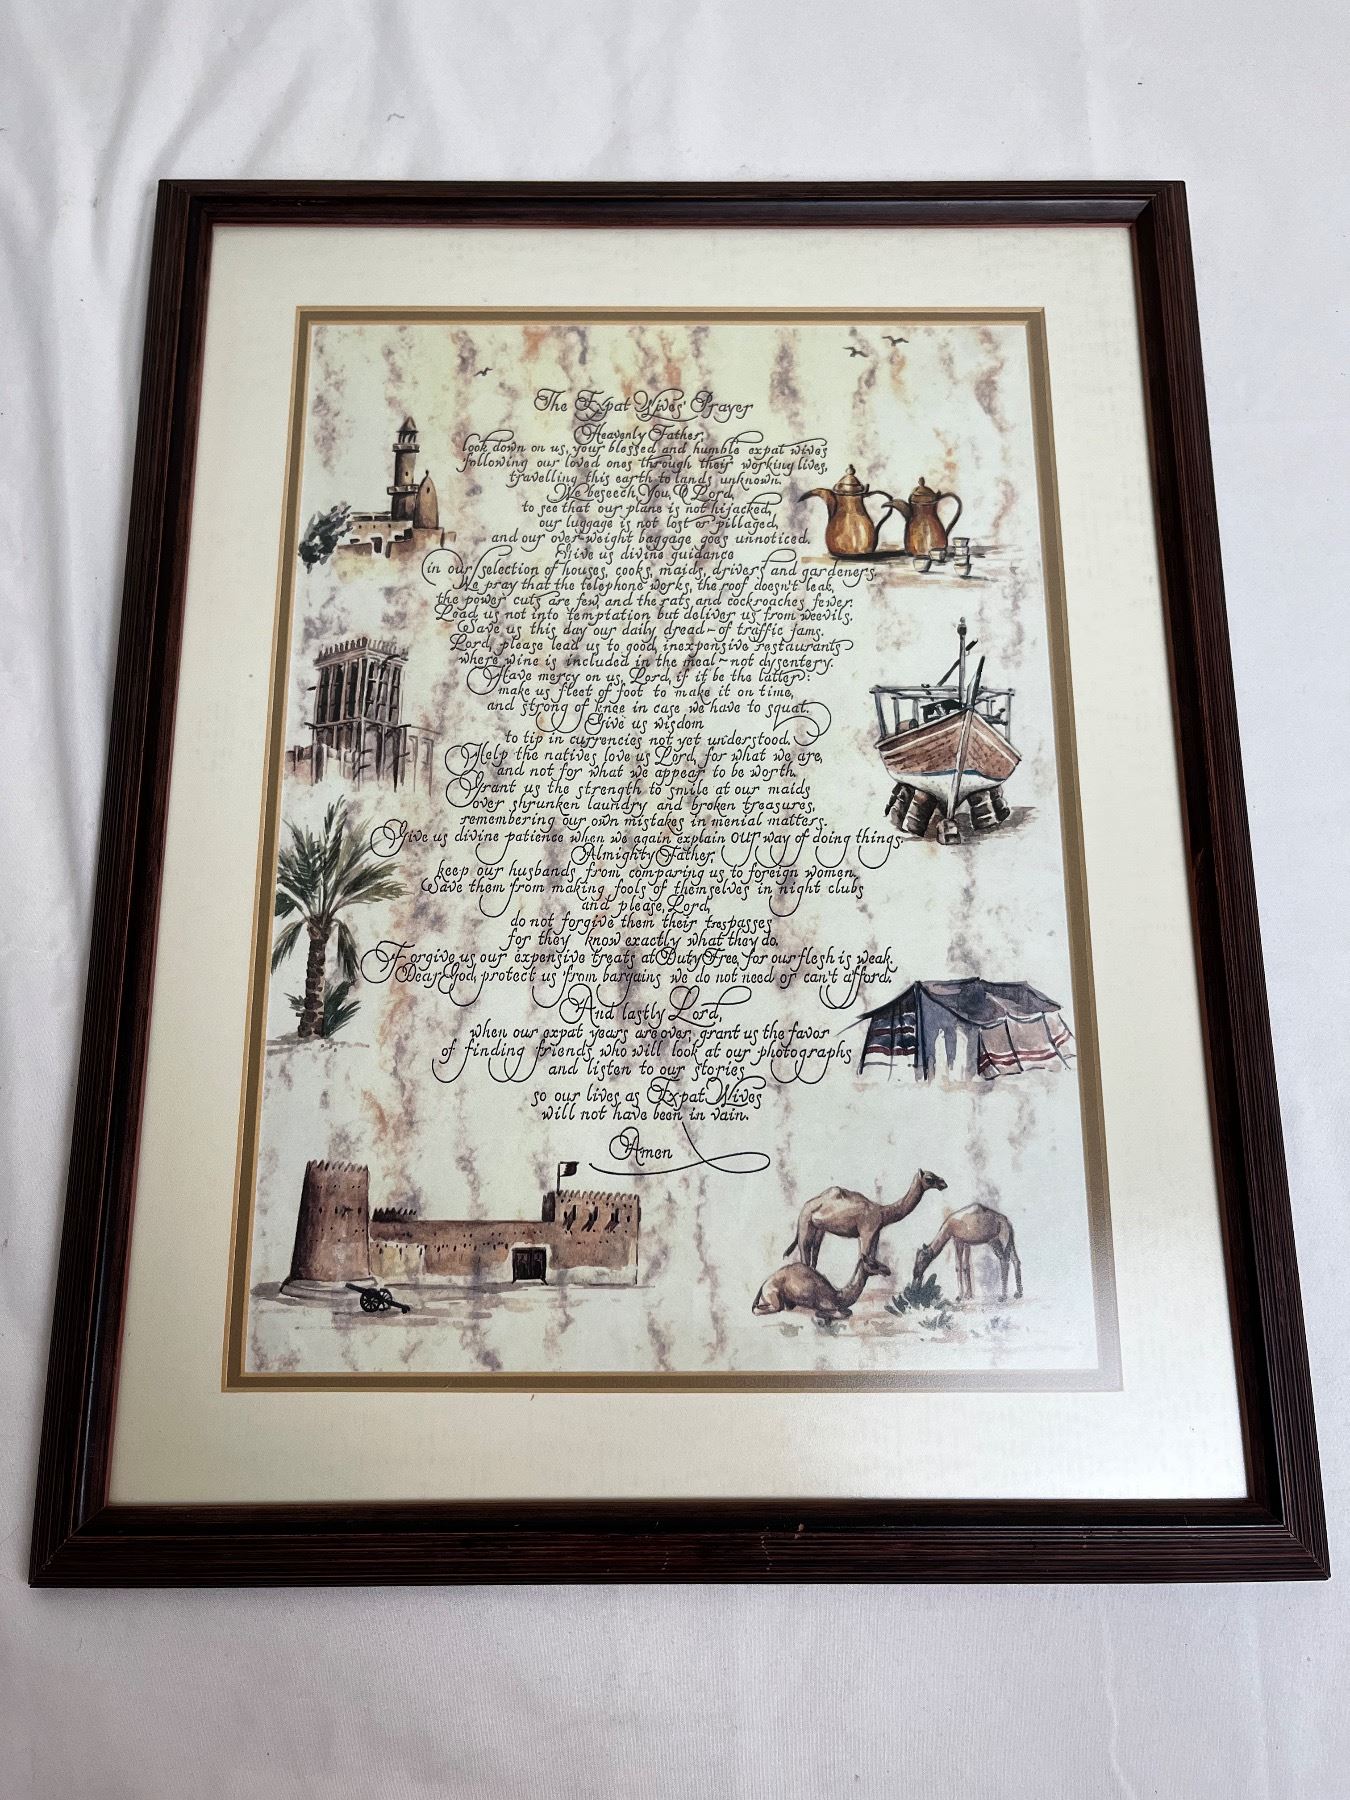 The Expat Wives' Prayer
Heavenly Father,
look down on us, your blessed and humble expat wives
following our loved ones through their working lives,
travelling this earth to lands unknown.
We beseech You, O Lord,
to see that our plane is not hijacked,
our luggage is not lost or pillaged,
and our over-weight baggage goes unnoticed.
Give us divine guidance
in our selection of houses, cooks, maids, drivers and gardeners.
We pray that the telephone works, the roof doesn't leak,
the power cuts are few, and the rats and cockroaches fewer.
Lead us not into temptation but deliver us from weevils.
Save us this day our daily dread – of traffic jams.
Lord, please lead us to good, inexpensive restaurants
where wine is included in the meal – not dysentery.
Have mercy on us, Lord, if it be the latter:
make us fleet of foot to make it on time,
and strong of knee in case we have to squat.
Give us wisdom
to tip in currencies not yet understood.
Help the natives love us Lord, for what we are,
and not for what we appear to be worth.
Grant us the strength to smile at our maids
over shrunken laundry and broken treasures,
remembering our own mistakes in menial matters.
Give us divine patience when we again explain OUR way of doing things.
Almighty Father,
keep our husbands from comparing us to foreign women,
Save them from making fools of themselves in night clubs
and please, Lord,
do not forgive them their trespasses
for they know exactly what they do.
Forgive us our expensive treats at Duty Free, for our flesh is weak.
Dear God, protect us from bargains we do not need or can't afford.
And lastly Lord,
when our expat years are over, grant us the favor
of finding friends who will look at our photographs
and listen to our stories
so our lives as Expat Wives
will not have been in vain.
Amen